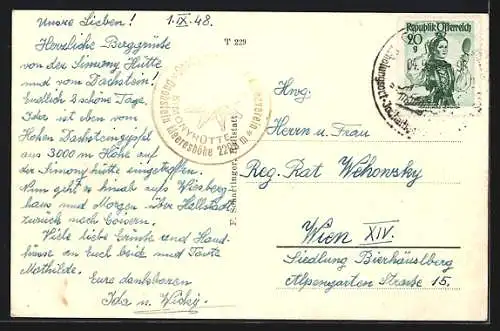 Unsre Lieben! 1.IX.48.
Herzliche Berggrüße
von der Simony Hütte
und vom Dachstein!
Endlich 2 schöne Tage,
Ida ist eben vom
Hohen Dachsteingipfel
aus 3000 m Höhe auf
der Simonyhütte eingetroffen.
Nun geht es hinab aufs Wiesberg-
haus und Morgen über Hallstadt
zurück nach Goisern.
Viele liebe Grüße und Hand-
küsse an Euch beide und Tante
Mathilde.
Eure dankbaren
Ida u. Wicky.
T 229
SIMONYHÜTTE
Meereshöhe 220 m
F. Schaffinger, Hallstatt
Republik Österreich
20
g
Hwg.
Herrn u. Frau
Reg. Rat Wehonsky
Wien XIV.
Siedlung Bierhäuslberg
Alpengarten Straße 15.